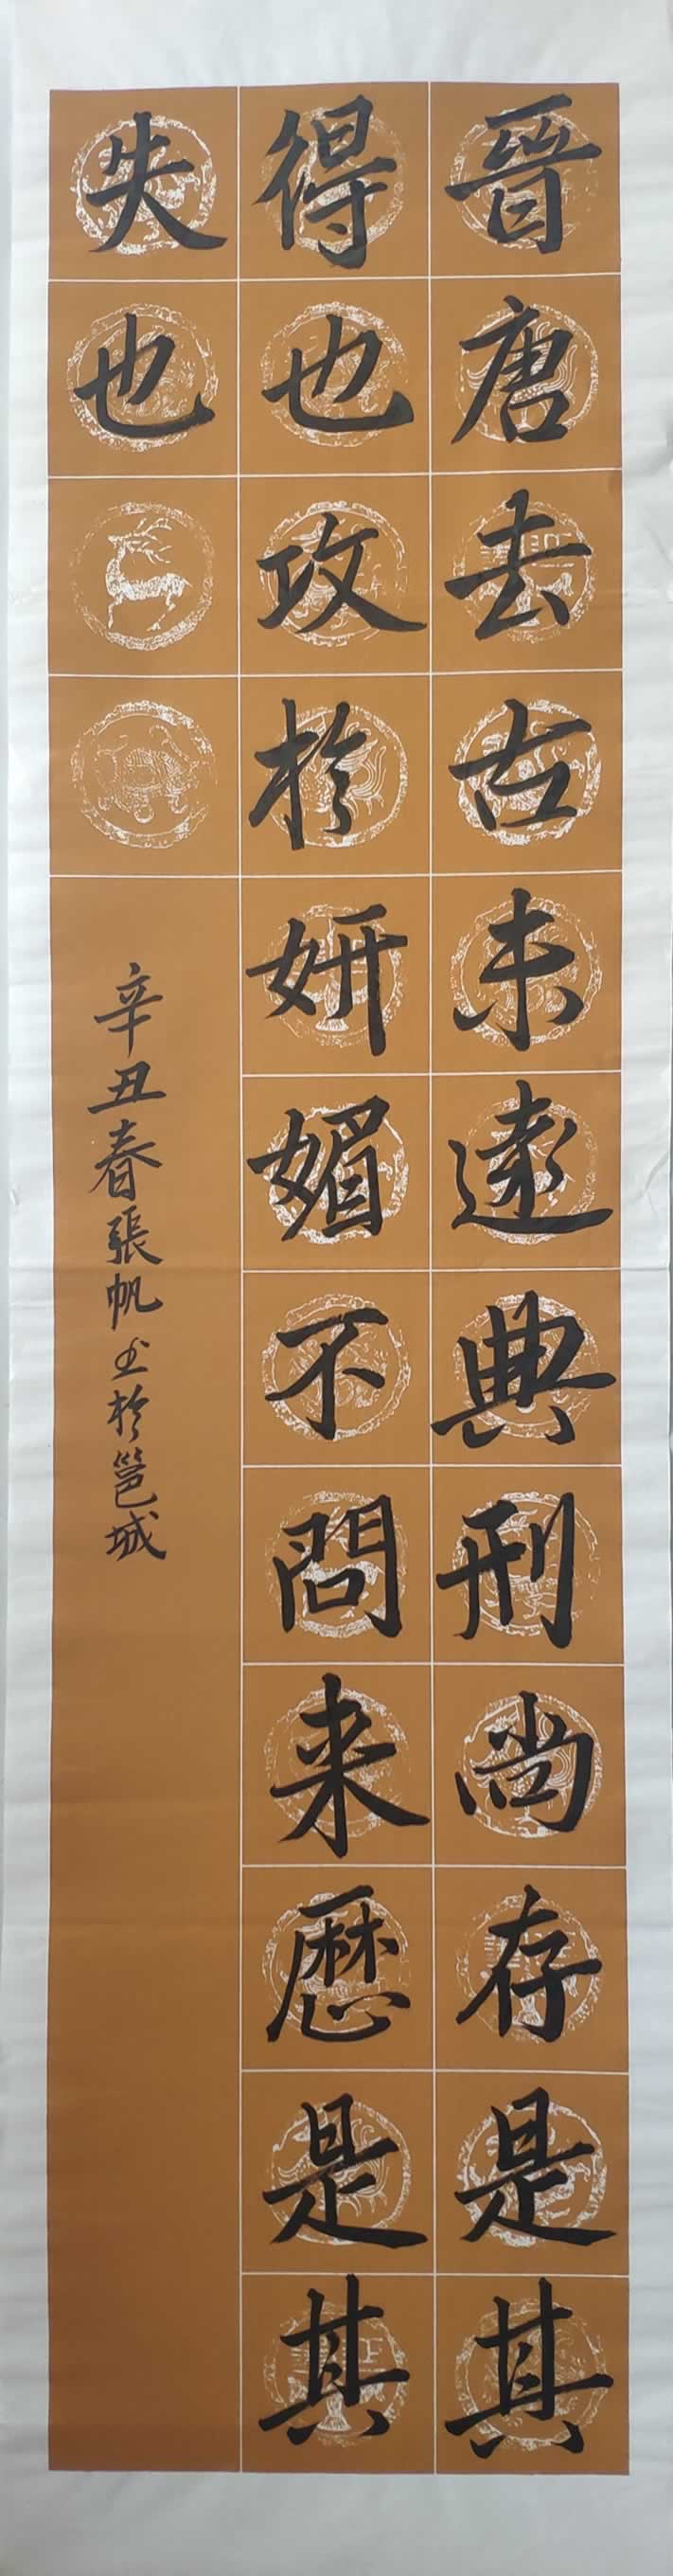 晋唐去古未遠典刑尚存是其
得也攻於妍媚不問来歷是其
失也
辛丑春張帆书於邕城